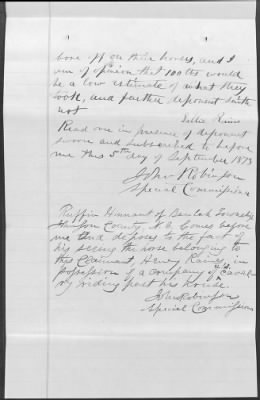 bore off on their horses, and I
am of opinion that 100 lbs would
be a low estimate of what they
took, and further deponent saith
not
Read over in presence of deponent
sworn and subscribed to before
me this 5th day of September 1873
John Robinson
Special Commissioner
Ruffin Hinnant of Beulah Township
County, N.C. Comes before
me and deposes to the fact of
his seeing the horse belonging to
this Claimant, Henry Raines, in
possession of a company of U.S. caval-
ry riding past his house.
Jno Robinson
Special Commissioner